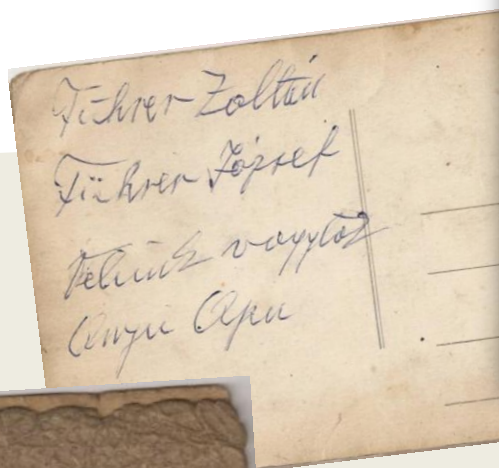 Führer Zoltán
Führer József
Velünk vagytok
Anyu Apu